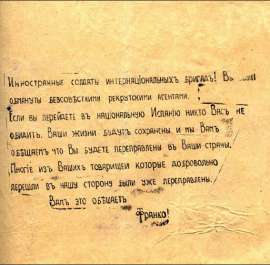 Иностранные солдаты интернациональных бригад! Вы
обмануты безсовѣсткими рекрутскими агентами.
Если вы перейдете въ национальную Испанію никто Васъ не
обидитъ, Ваши жизни будутъ сохранены, и мы Вамъ
обѣщаемъ что Вы будете переправлены въ Ваши страны.
Многіе изъ Вашихъ товарищей которые добровольно
перешли въ нашу сторону были уже переправлены.
Вамъ это обѣщаетъ
Франко!